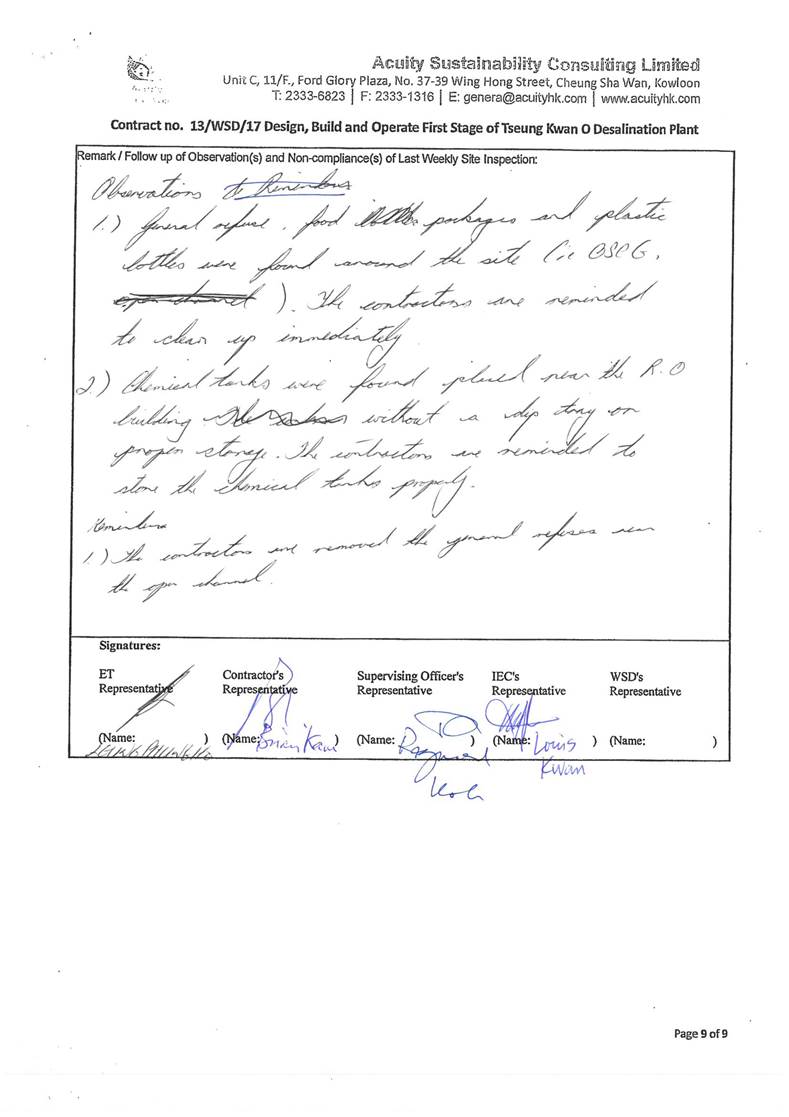 Acuity Sustainability Consulting Limited
Unit C, 11/F., Ford Glory Plaza, No. 37-39 Wing Hong Street, Cheung Sha Wan, Kowloon
T: 2333-6823 | F: 2333-1316 | E: genera@acuityhk.com | www.acuityhk.com
Contract no. 13/WSD/17 Design, Build and Operate First Stage of Tseung Kwan O Desalination Plant
Remark / Follow up of Observation(s) and Non-compliance(s) of Last Weekly Site Inspection:
Observations
1.) General refuse, food packages and plastic
bottles were found around the site (ie OSCG,
open channel ). The contractors are reminded
to clean up immediately
2.) Chemical tanks were found placed near the R.O
building without a dip tray or
proper storage. The contractors are reminded to
store the chemical tanks properly.
Reminders
1.) The contractors are removed the general refuses near
the open channel.
Signatures:
ET Representative
Contractor's Representative
Supervising Officer's Representative
IEC's Representative
WSD's Representative
(Name: )
(Name: Brian Kam )
(Name: Raymond Koh )
(Name: Louis Kwan )
(Name: )
Page 9 of 9